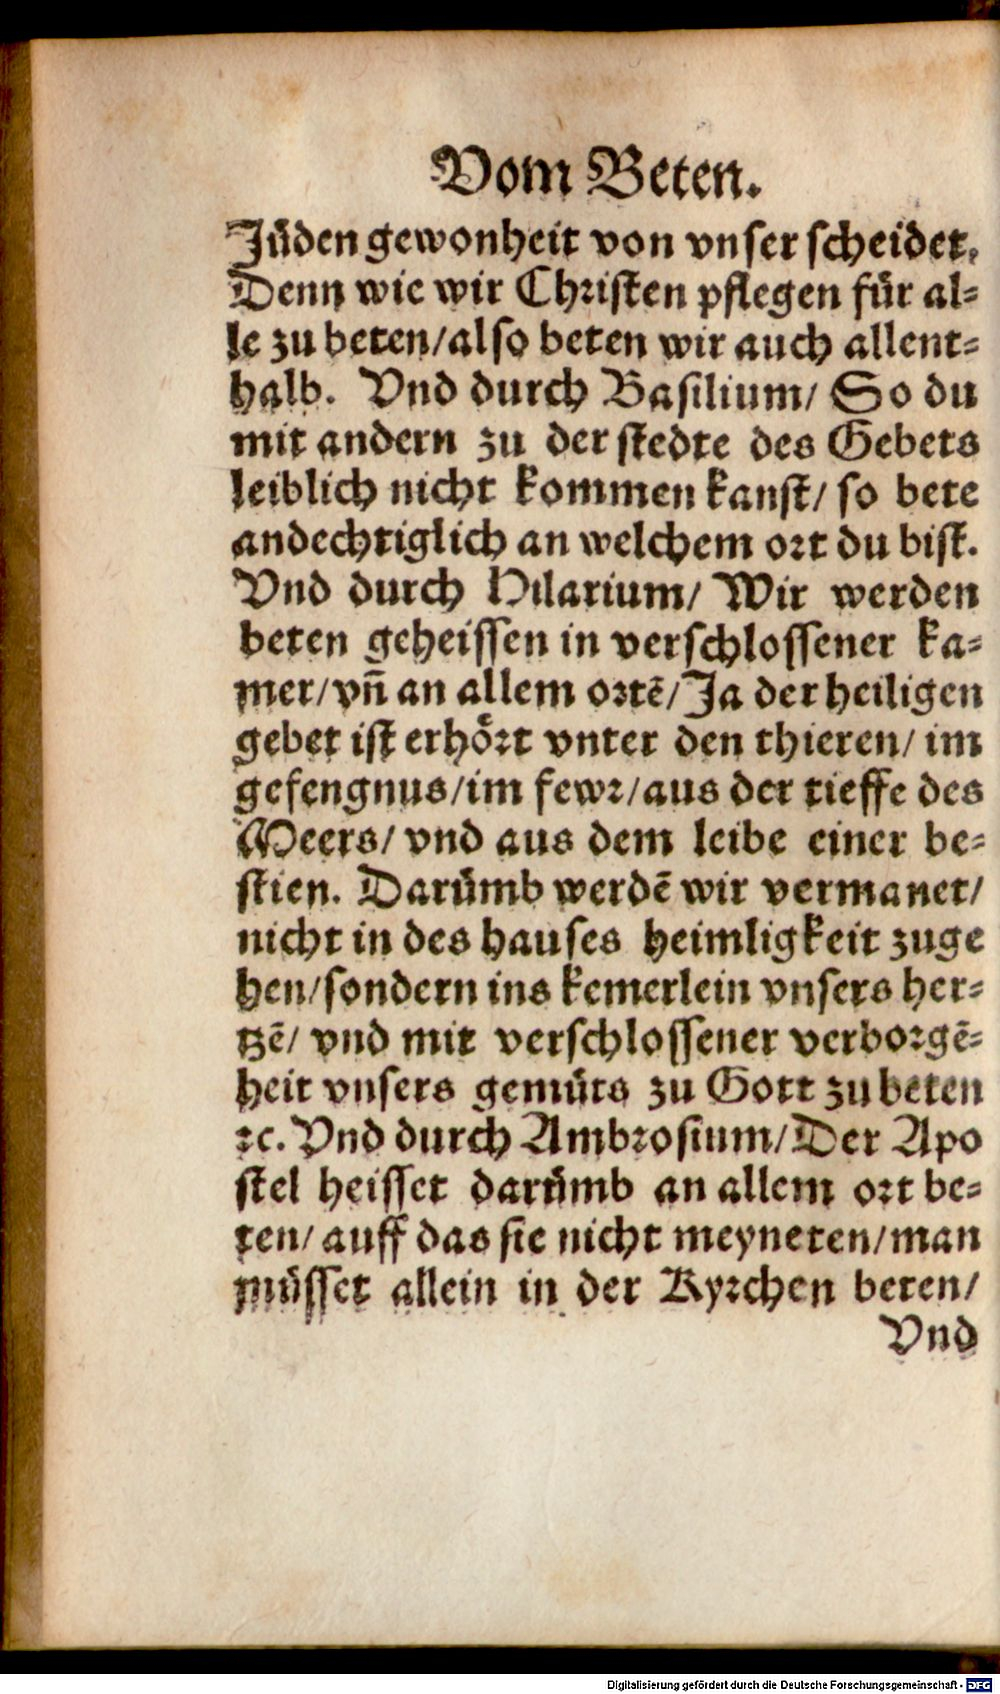 Vom Beten.
Jüden gewonheit von vnser scheidet.
Denn wie wir Christen pflegen für al⸗
le zu beten/also beten wir auch allent⸗
halb. Vnd durch Basilium/ So du
mit andern zu der stedte des Gebets
leiblich nicht kommen kanst/ so bete
andechtiglich an welchem ort du bist.
Vnd durch Hilarium/ Wir werden
beten geheissen in verschlossener ka⸗
mer/vñ an allem ortē/Ja der heiligen
gebet ist erhört vnter den thieren/ im
gefengnus/im fewr/aus der tieffe des
Meers/ vnd aus dem leibe einer be⸗
stien. Darümb werdē wir vermanet/
nicht in des hauses heimligkeit zuge
hen/sondern ins kemerlein vnsers her⸗
tzē/ vnd mit verschlossener verborgē⸗
heit vnsers gemüts zu Gott zu beten
ꝛc. Vnd durch Ambrosium/Der Apo
stel heisset darümb an allem ort be⸗
ten/ auff das sie nicht meyneten/man
müsset allein in der Kyrchen beten/
Vnd
Digitalisierung gefördert durch die Deutsche Forschungsgemeinschaft - DFG